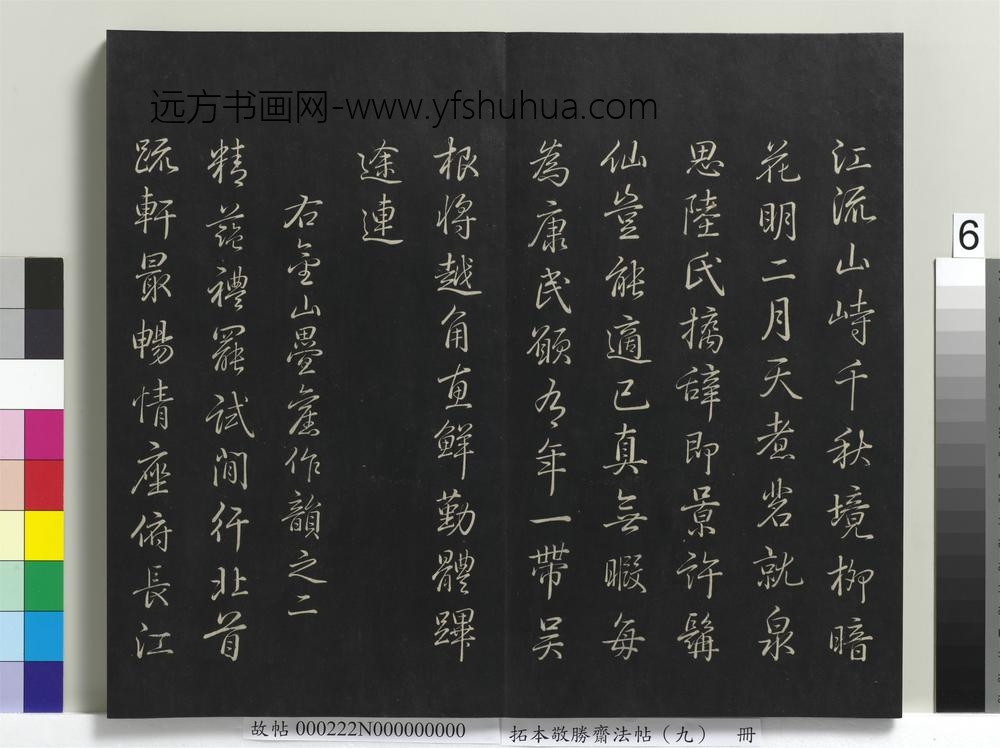 远方书画网-www.yfshuhua.com
江流山峙千秋境柳暗
花明二月天煮茗就泉
思陸氏摛辞即景許髯
仙豈能適已真無暇每
為康民願有年一帶吴
根將越角恵鮮勤體蹕
途連
右金山疊舊作韻之二
精藍禮罷試閒行北首
疏軒最暢情座俯長江
6
故帖 000222N000000000
拓本敬勝齋法帖（九） 冊